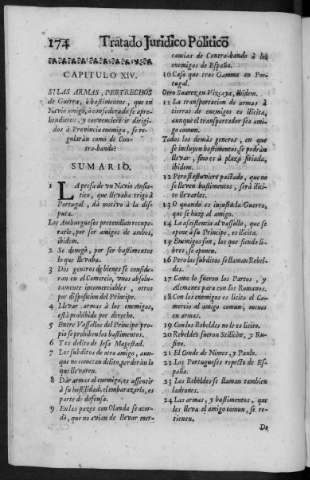 174 Tratado Juridico Politico
CAPITULO XIV.
SI LAS ARMAS, PERTRECHOS
de Guerra, ò bastimentos, que en
Navio amigo, ò confederado se apre-
hendieren, y convenciere ir dirigi-
dos à Provincia enemiga, se re-
gularàn como de Con-
tra-bando?
SUMARIO.
1 LA presa de un Navio Ansea-
tico, que llevaba trigo à
Portugal, dà motivo à la dis-
puta.
Los Amburgueses pretendian recupe-
rarlo, por ser amigos de ambos,
ibidem.
2 Se denegò, por ser bastimentos
lo que llevaba.
3 Dos generos de bienes se conside-
ran en el Comercio, unos absolu-
tamente incomerciables, otros
por disposicion del Principe.
4 Llevar armas à los enemigos,
està prohibido por derecho.
5 Entre Vassallos del Principe pro-
pio se prohiben los bastimentos.
6 Y es delito de lesa Magestad.
7 Los subditos de otro amigo, aun-
que no cometan delito, perderàn lo
que llevaren.
8 Dàr armas al enemigo, es assentir
à su hostilidad, el embarazarlo, es
parte de defensa.
9 En las pazes con Olanda se acor-
dò, que no avian de llevar mer-
cancias de Contra-bando à los
enemigos de España.
10 Caso que trae Gamma en Por-
tugal.
Otro Suarez, en Vizcaya, ibidem.
11 La transportacion de armas à
tierras de enemigos es ilicita,
aunque el transportador sea ami-
go comun.
Todos los demàs generos, en que
se incluyen bastimentos, se podràn
llevar, sino es à plaza sitiada,
ibidem.
12 Pero si estuviere pactado, que no
se lleven bastimentos, serà ilici-
to llevarlos.
13 O quando es injusta la Guerra,
que se haze al amigo.
14 La assistencia al vassallo, que se
opone à su Principe, es ilicita.
15 Enemigos son, los que siendo li-
bres, se oponen.
16 Pero los subditos se llaman Rebel-
des.
17 Como lo fueron los Partos, y
Alemanes para con los Romanos.
18 Con los enemigos es licito el Co-
mercio al amigo comun, menos
en armas.
19 Con los Rebeldes no le es licito.
20 Rebeldes fueron Sicilicbe, y Bas-
sine.
21 El Conde de Nimes, y Paulo.
22 Los Portugueses respecto de Es-
paña.
23 Los Rebeldes se llaman tambien
ladrones.
24 Las armas, y bastimentos, que
les lleva el amigo comun, se re-
tienen.
De